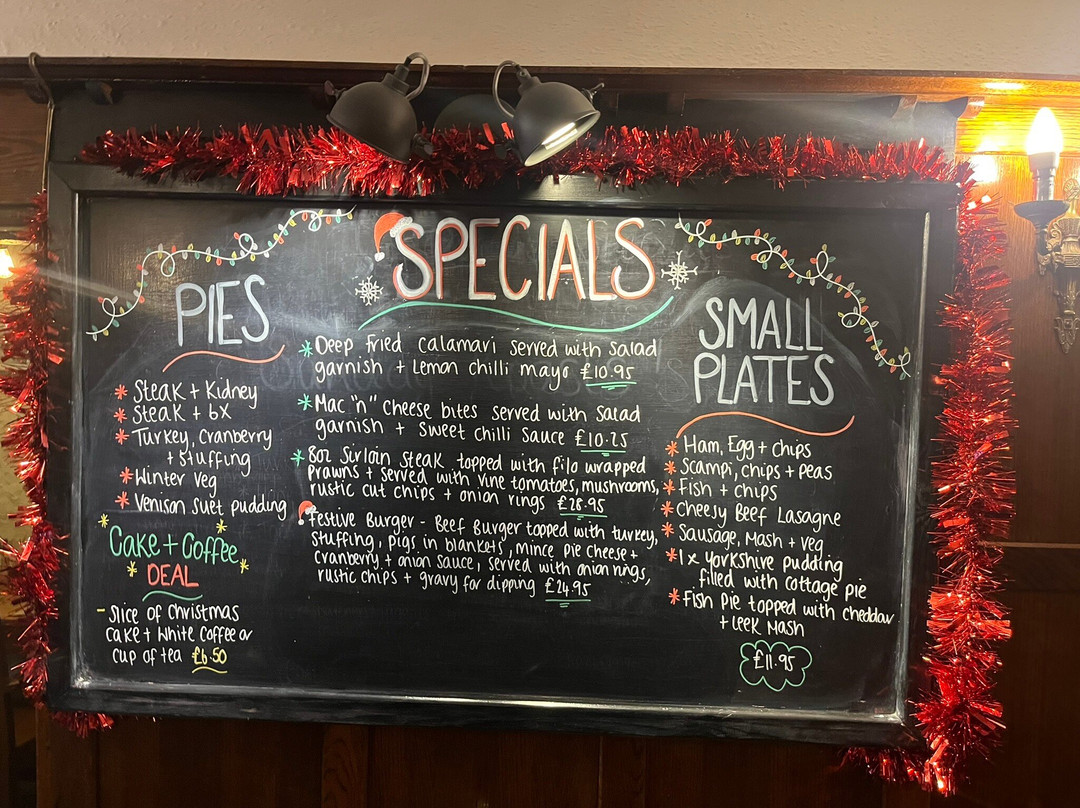 SPECIALS
PIES
* Steak + Kidney
* Steak + bx
* Turkey, Cranberry
+ Stuffing
* Winter Veg
* Venison suet pudding
Cake + Coffee
DEAL
- Slice of Christmas
cake + White Coffee or
cup of tea £6.50
* Deep fried calamari served with salad
garnish + Lemon chilli mayo £10.95
* Mac "n" Cheese bites served with salad
garnish + Sweet Chilli Sauce £10.25
* 8oz Sirloin Steak topped with filo wrapped
Prawns + served with vine tomatoes, mushrooms,
rustic cut chips + onion rings £28.95
Festive Burger - Beef Burger topped with turkey,
stuffing, pigs in blankets, mince pie cheese +
cranberry + onion sauce, served with onion rings,
rustic chips + gravy for dipping £24.95
SMALL
PLATES
* Ham, Egg + chips
* Scampi, chips + peas
* Fish + chips
* Cheesy Beef Lasagne
* Sausage, Mash + veg
* 1 x Yorkshire pudding
filled with cottage pie
* Fish Pie topped with cheddar
+ Leek Mash
£11.95